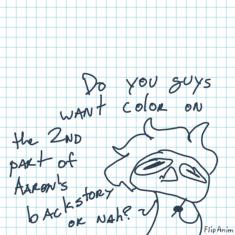 Do you guys
want color on
the 2nd
part of
Aaron's
backstory
or nah?
FlipAnim